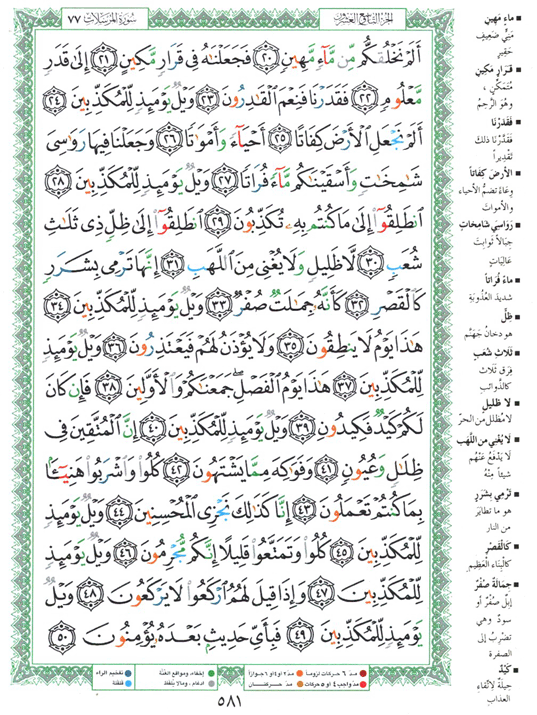 سورة المرسلات ٧٧
الجزء التاسع والعشرون
أَلَمْ نَخْلُقكُّم مِّن مَّآءٍ مَّهِينٍ ٢٠ فَجَعَلْنَٰهُ فِى قَرَارٍ مَّكِينٍ ٢١ إِلَىٰ قَدَرٍ
مَّعْلُومٍ ٢٢ فَقَدَرْنَا فَنِعْمَ ٱلْقَٰدِرُونَ ٢٣ وَيْلٌ يَوْمَئِذٍ لِّلْمُكَذِّبِينَ ٢٤
أَلَمْ نَجْعَلِ ٱلْأَرْضَ كِفَاتًا ٢٥ أَحْيَآءً وَأَمْوَٰتًا ٢٦ وَجَعَلْنَا فِيهَا رَوَٰسِىَ
شَٰمِخَٰتٍ وَأَسْقَيْنَٰكُم مَّآءً فُرَاتًا ٢٧ وَيْلٌ يَوْمَئِذٍ لِّلْمُكَذِّبِينَ ٢٨
ٱنطَلِقُوٓا۟ إِلَىٰ مَا كُنتُم بِهِۦ تُكَذِّبُونَ ٢٩ ٱنطَلِقُوٓا۟ إِلَىٰ ظِلٍّ ذِى ثَلَٰثِ
شُعَبٍ ٣٠ لَّا ظَلِيلٍ وَلَا يُغْنِى مِنَ ٱللَّهَبِ ٣١ إِنَّهَا تَرْمِى بِشَرَرٍ
كَٱلْقَصْرِ ٣٢ كَأَنَّهُۥ جِمَٰلَتٌ صُفْرٌ ٣٣ وَيْلٌ يَوْمَئِذٍ لِّلْمُكَذِّبِينَ ٣٤
هَٰذَا يَوْمُ لَا يَنطِقُونَ ٣٥ وَلَا يُؤْذَنُ لَهُمْ فَيَعْتَذِرُونَ ٣٦ وَيْلٌ يَوْمَئِذٍ
لِّلْمُكَذِّبِينَ ٣٧ هَٰذَا يَوْمُ ٱلْفَصْلِ جَمَعْنَٰكُمْ وَٱلْأَوَّلِينَ ٣٨ فَإِن كَانَ
لَكُمْ كَيْدٌ فَكِيدُونِ ٣٩ وَيْلٌ يَوْمَئِذٍ لِّلْمُكَذِّبِينَ ٤٠ إِنَّ ٱلْمُتَّقِينَ فِى
ظِلَٰلٍ وَعُيُونٍ ٤١ وَفَوَٰكِهَ مِمَّا يَشْتَهُونَ ٤٢ كُلُوا۟ وَٱشْرَبُوا۟ هَنِيٓـًٔۢا
بِمَا كُنتُمْ تَعْمَلُونَ ٤٣ إِنَّا كَذَٰلِكَ نَجْزِى ٱلْمُحْسِنِينَ ٤٤ وَيْلٌ يَوْمَئِذٍ
لِّلْمُكَذِّبِينَ ٤٥ كُلُوا۟ وَتَمَتَّعُوا۟ قَلِيلًا إِنَّكُم مُّجْرِمُونَ ٤٦ وَيْلٌ يَوْمَئِذٍ
لِّلْمُكَذِّبِينَ ٤٧ وَإِذَا قِيلَ لَهُمُ ٱرْكَعُوا۟ لَا يَرْكَعُونَ ٤٨ وَيْلٌ
يَوْمَئِذٍ لِّلْمُكَذِّبِينَ ٤٩ فَبِأَىِّ حَدِيثٍۭ بَعْدَهُۥ يُؤْمِنُونَ ٥٠
ماءٍ مَهينٍ
مَنيٍّ ضعيفٍ
حقيرٍ
قرارٍ مكينٍ
مُتمكِّنٍ،
وهو الرَّحِمُ
فقدَرْنا
فقدَّرْنا ذلك
تقديراً
الأرضَ كِفاتاً
وِعاءً تضمُّ الأحياء
والأموات
رواسيَ شامخاتٍ
جبالاً ثوابتَ
عالياتٍ
ماءً فُراتاً
شديدَ العُذوبة
ظِلٍّ
هو دخان جهنّم
ثلاث شُعَبٍ
فِرَقٍ ثلاث
كالذوائب
لا ظليلٍ
لا مُظلِّلٍ من الحرّ
لا يُغني من اللهب
لا يدفع عنهم
شيئاً منه
ترمي بشررٍ
هو ما تطاير
من النار
كالقصر
كالبناء العظيم
جمالةٌ صُفْرٌ
إبلٌ صُفْرٌ أو
سودٌ وهي
تضرِبُ إلى
الصفرة
كيْدٌ
حيلةٌ لاتّقاء
العذاب
مدّ ٦ حركات لزوماً
مدّ ٢ أو ٤ أو ٦ جوازاً
إخفاء، ومواقع الغُنَّة
تفخيم الراء
مدّ واجب ٤ أو ٥ حركات
مدّ حركتان
إدغام، وما لا يُلفظ
قلقلة
٥٨١